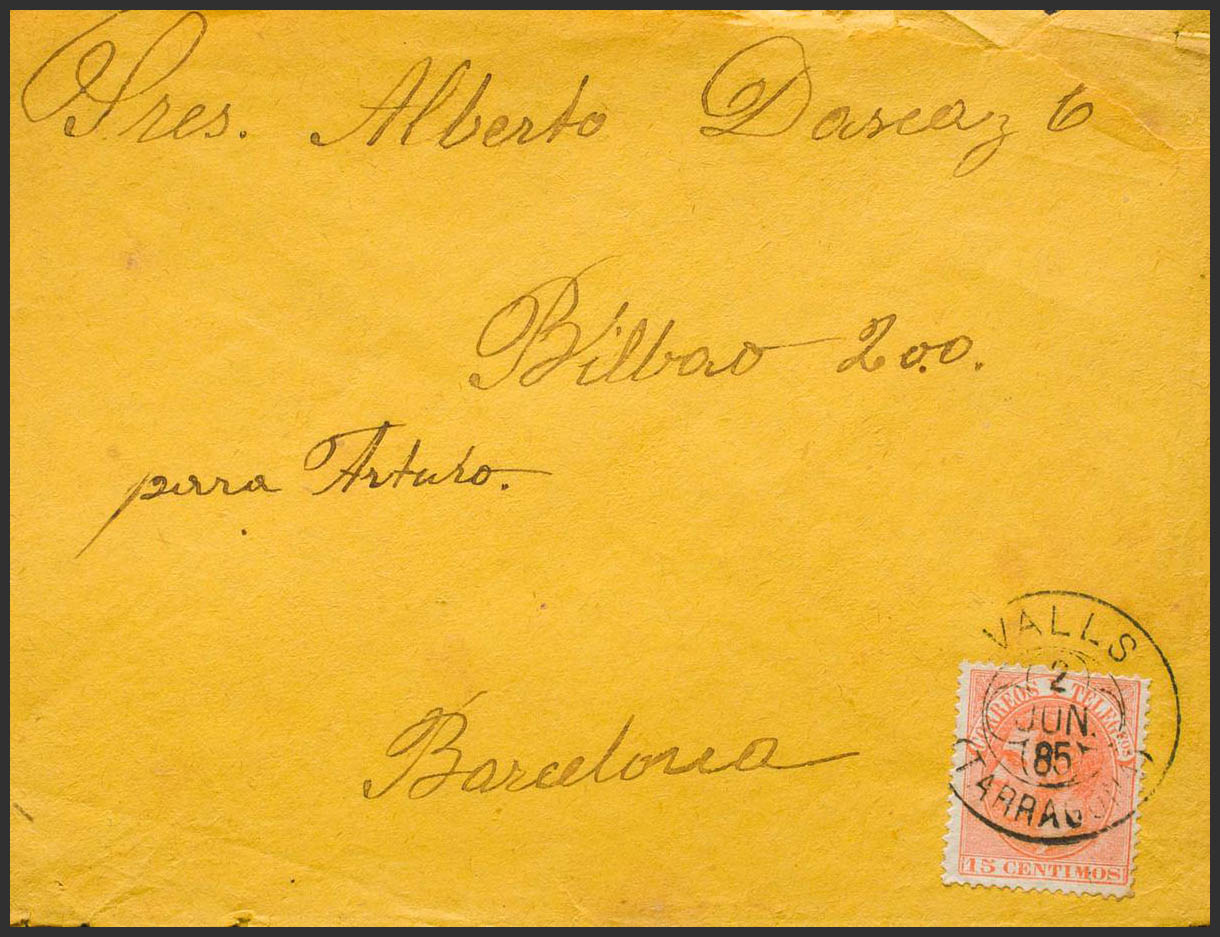 Sres. Alberto Dascaz 6
Bilbao 200.
para Arturo.
Barcelona
VALLS
2
JUN.
85
(TARRAGONA)
CORREOS Y TELEGFOS
15 CENTIMOS